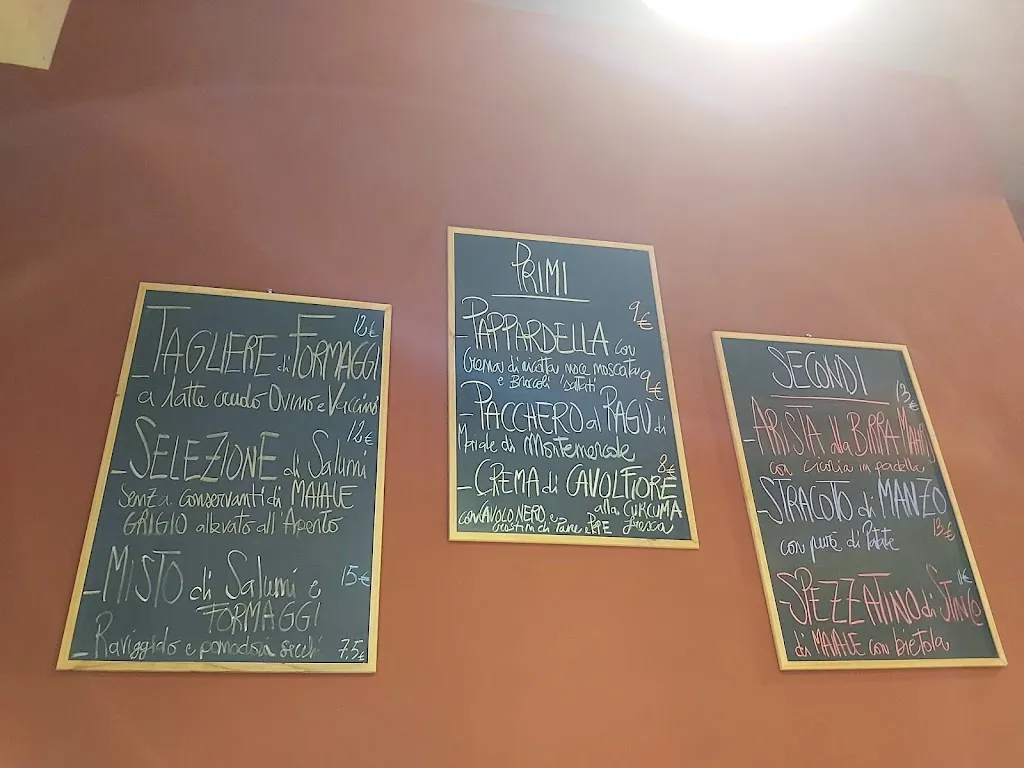 12€
- TAGLIERE di FORMAGGI
a latte crudo Ovino e Vaccino
12€
- SELEZIONE di Salumi
senza conservanti di MAIALE
GRIGIO allevato all'Aperto
- MISTO di Salumi e 15€
FORMAGGI
- Raviggiolo e pomodori secchi 7,5€
PRIMI
9€
- PAPPARDELLA con
Crema di ricotta noce moscata
e Broccoli saltati 9€
- PACCHERO al RAGÙ di
Maiale di Montemercole
8€
- CREMA di CAVOLFIORE
con CAVOLO NERO e alla CURCUMA
crostini di Pane e PEPE fresca
SECONDI
13€
- ARISTA alla BIRRA
con cicoria in padella
- STRACOTTO di MANZO
13€
con purè di Patate
- SPEZZATINO di STINCO
di MAIALE con bietola